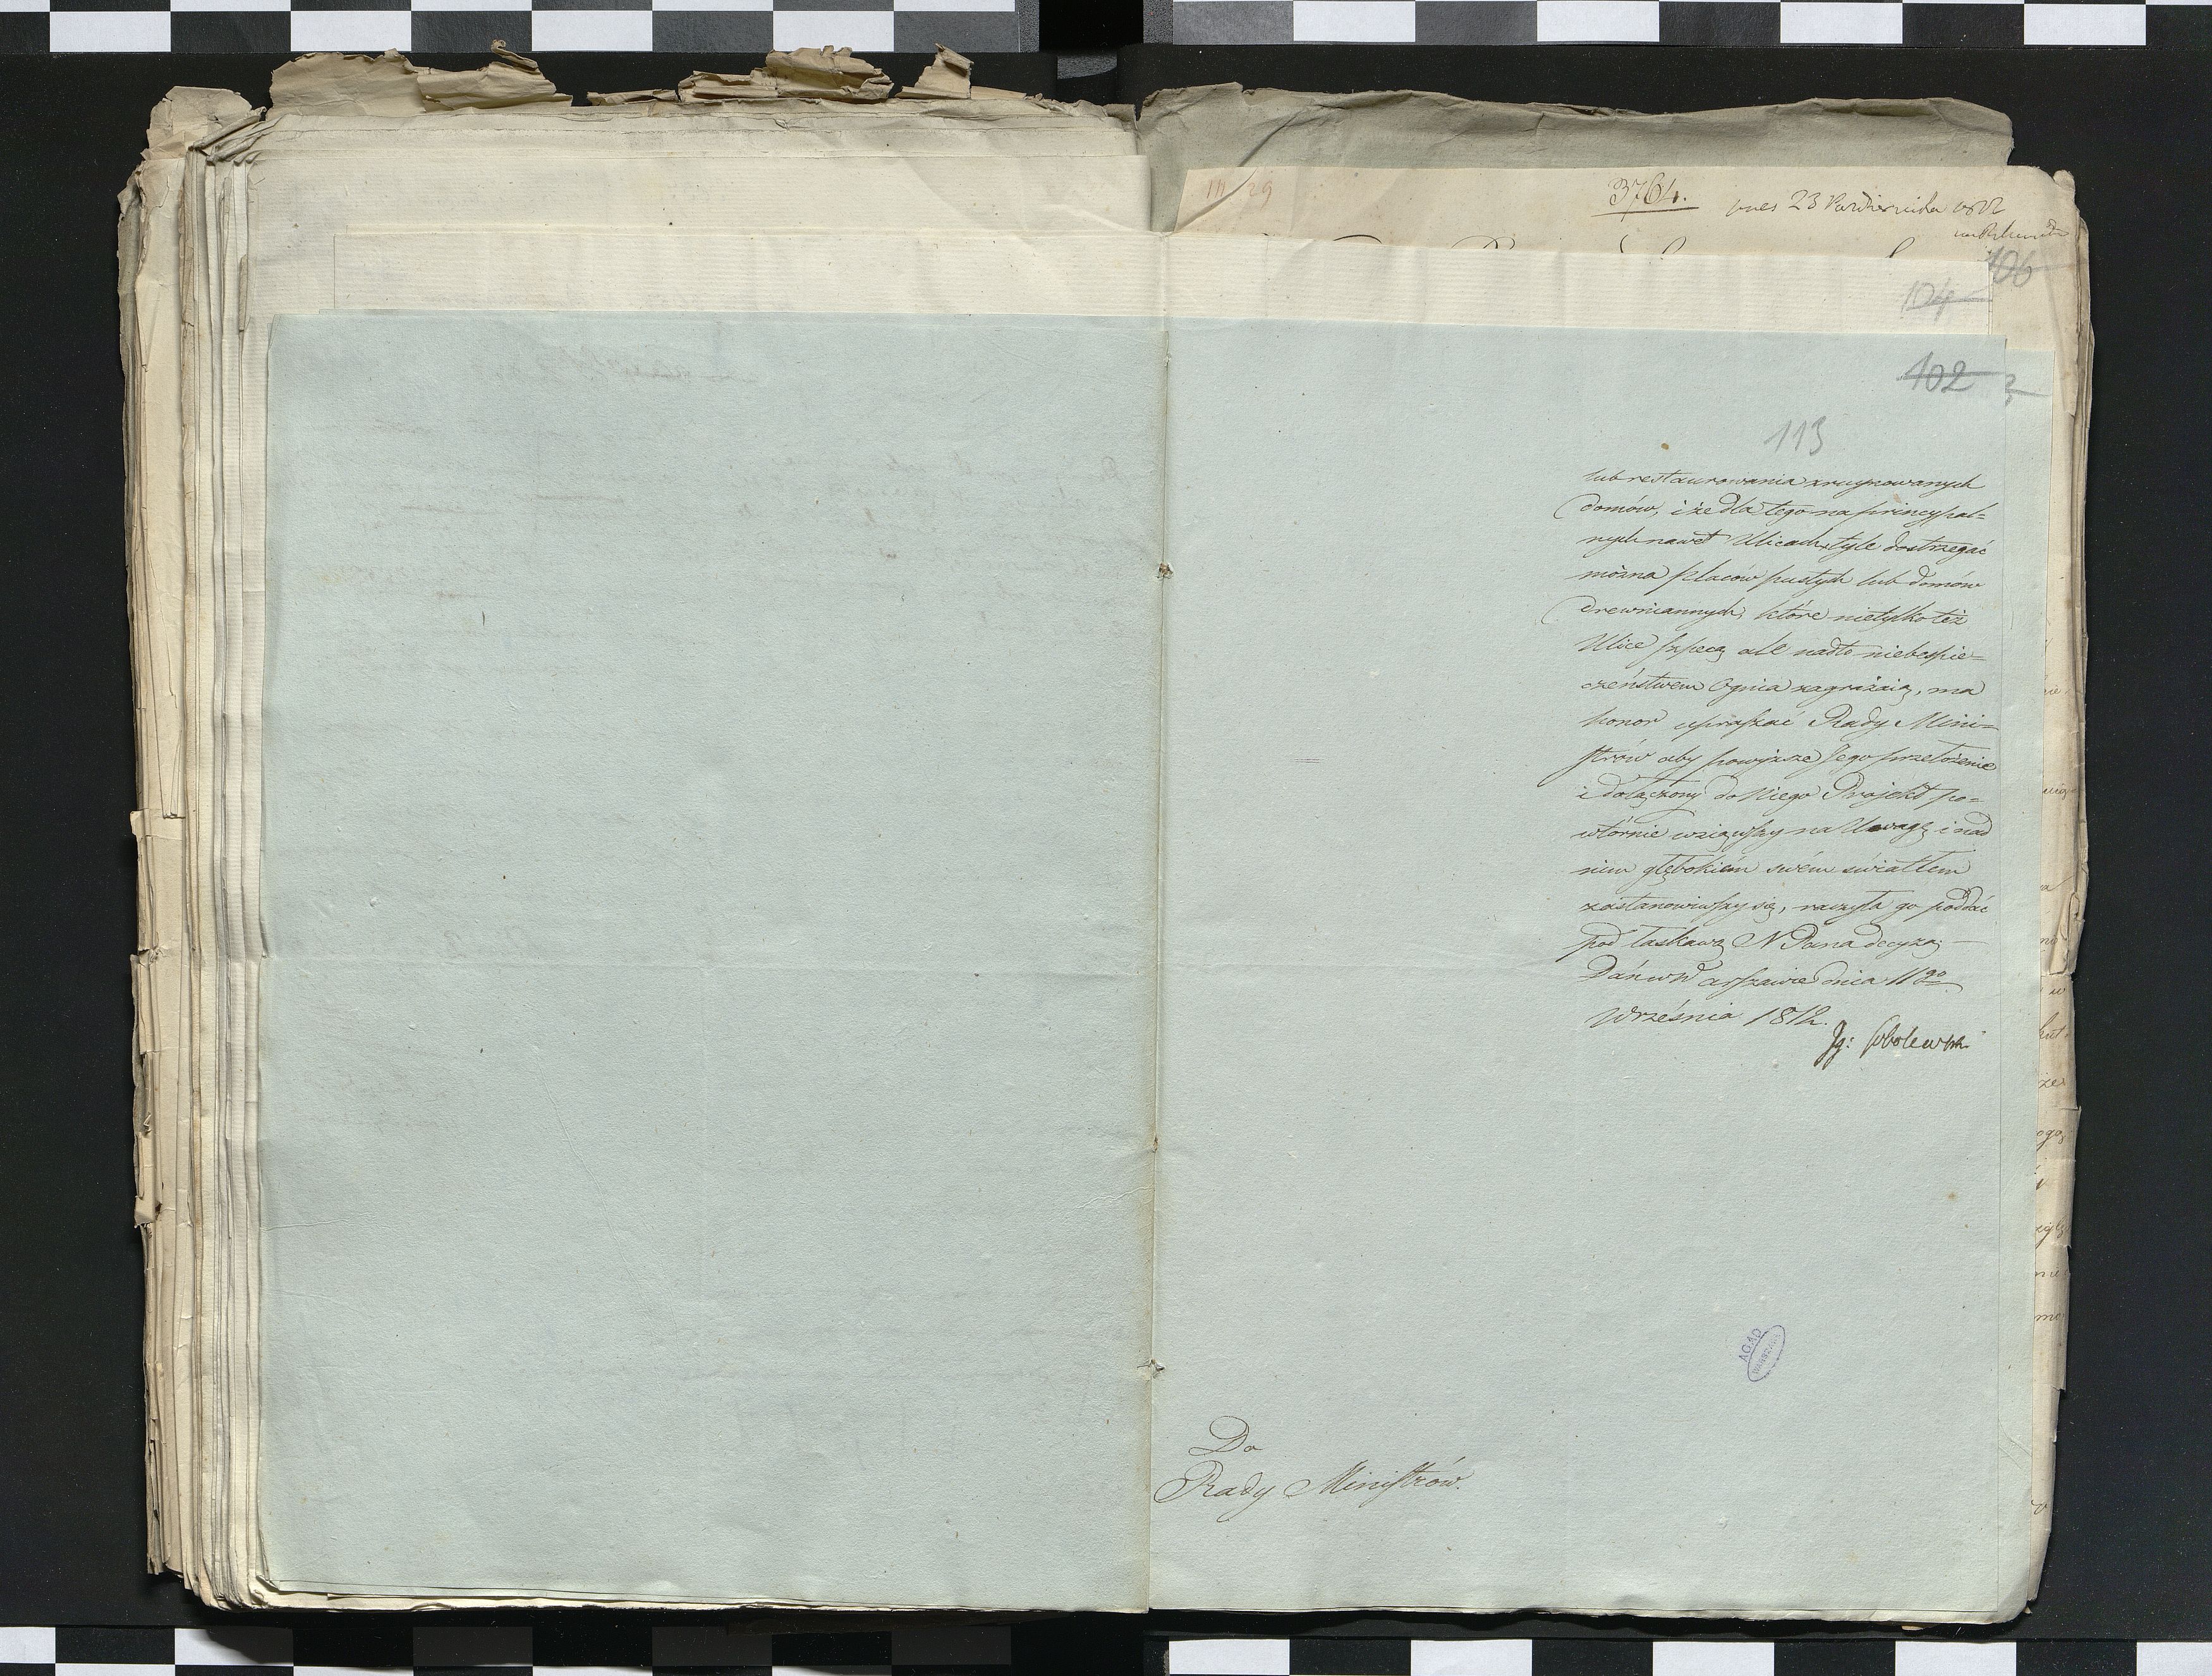 III 29
3764.
wnies 23 Października 1812
106
104
102
113
lub restaurowania zruynowanych
domów, i że dla tego na princypal=
nych nawet Ulicach, tyle dostrzegać
można placów pustych lub domów
drewniannych, które nietylko też
Ulice szpecą ale nadto niebespie=
czeństwem Ognia zagrażaią, ma
honor upraszać Rady Mini=
strów aby powyższe Jego przełożenie
i dołączony do Niego Projekt po=
wtórnie wziąwszy na Uwagę i nad
nim głębokiém swém światłem
zastanowiwszy się, raczyła go poddać
pod łaskawą N Pana decyzą; —
Dań w Warszawie dnia 11go
Września 1812.
Ig: Sobolewski
AGAD
WARSZAWA
Do
Rady Ministrów.